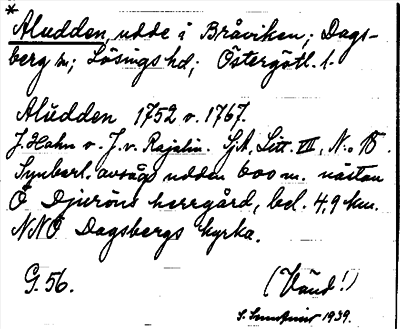 *
Aludden, udde i Bråviken; Dags-
berg sn; Lösings hd; Östergötl. l.
Aludden 1752 o. 1767.
J. Hahn o. J. v. Rajalin. Sj.A. Litt. VII, No 15.
Synberl. avsågs udden 600 m. nästan
Ö Djuröns herrgård, bel. 4,9 km.
NNÖ Dagsbergs kyrka.
G. 56.
(Vänd!)
S. 1939.